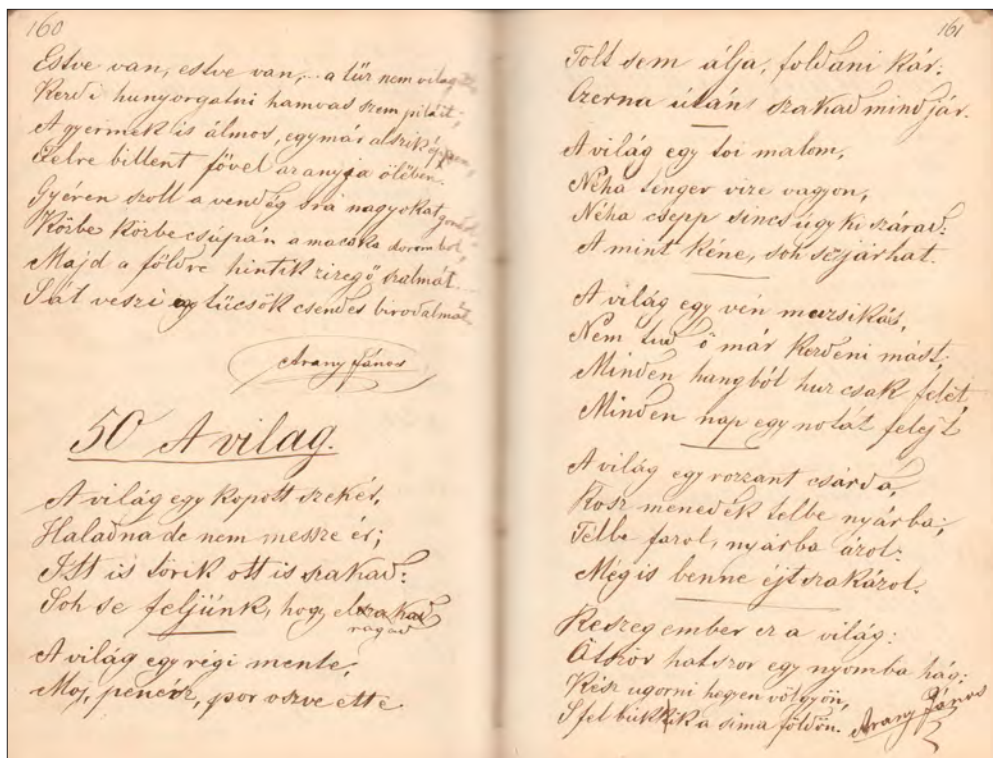 160
Estve van, estve van,.. a tűz nem világ
Kerdi hunyorgatni hamvad szem piláit;
A gyermek is álmos, egy már alszik éppen,
Ŏelre billent fővel az anyja ölében.
Gyéren szoll a vendég s rá nagyokat gondol.
Körbe Körbe csúpán a macska dorombol,
Majd a földre hintik zizegő szalmát...
S át veszi egy tücsök csendes birodalmát
Arany János
50 A vilag.
A világ egy kopott szekér,
Haladna de nem messze ér;
Itt is törik ott is szakad:
Soh se feljünk, hogy elszakad
ragad
A világ egy régi mente,
Moj, penész, por oszve ette
161
Tolt sem álja, foldani kár:
Czerna után s szakad mindjár.
A világ egy toi malom,
Néha tenger vize vagyon,
Néha csepp sincs úgy ki szárad:
A mint kéne, soh se járhat.
A világ egy vén muzsikás,
Nem tud ő már Kerdeni mást;
Minden hangból huz csak felét,
Minden nap egy notát felejt
A világ egy rozzant csárda,
Rosz menedék telbe nyárba;
Télbe fazol, nyárba ázol:
Még is benne éjtszakázol.
Reszeg ember ez a világ:
Ötször hatszor egy nyomba hág;
Kész ugorni hegyen völgyön,
S fel bukkik a sima földön.
Arany János